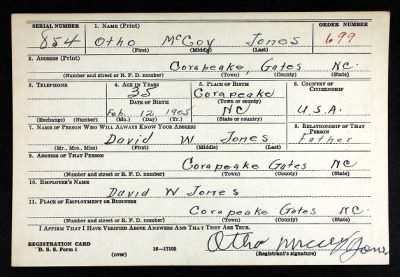 SERIAL NUMBER 1. NAME (Print) ORDER NUMBER
854 Otho McCoy Jones 699
(First) (Middle) (Last)
2. ADDRESS (Print)
Corapeake, Gates NC.
(Number and street or R. F. D. number) (Town) (County) (State)
3. TELEPHONE 4. AGE IN YEARS 5. PLACE OF BIRTH 6. COUNTRY OF CITIZENSHIP
35 Corapeake
DATE OF BIRTH (Town or county)
Feb. 12 1905 NC U.S.A.
(Exchange) (Number) (Mo.) (Day) (Yr.) (State or country)
7. NAME OF PERSON WHO WILL ALWAYS KNOW YOUR ADDRESS 8. RELATIONSHIP OF THAT PERSON
David W Jones Father
(Mr., Mrs., Miss) (First) (Middle) (Last)
9. ADDRESS OF THAT PERSON
Corapeake Gates NC
(Number and street or R. F. D. number) (Town) (County) (State)
10. EMPLOYER'S NAME
David W Jones
11. PLACE OF EMPLOYMENT OR BUSINESS
Corapeake Gates NC
(Number and street or R. F. D. number) (Town) (County) (State)
I AFFIRM THAT I HAVE VERIFIED ABOVE ANSWERS AND THAT THEY ARE TRUE.
Otho McCoy Jones
REGISTRATION CARD
D. S. S. Form 1 16—17105
(over) (Registrant's signature)